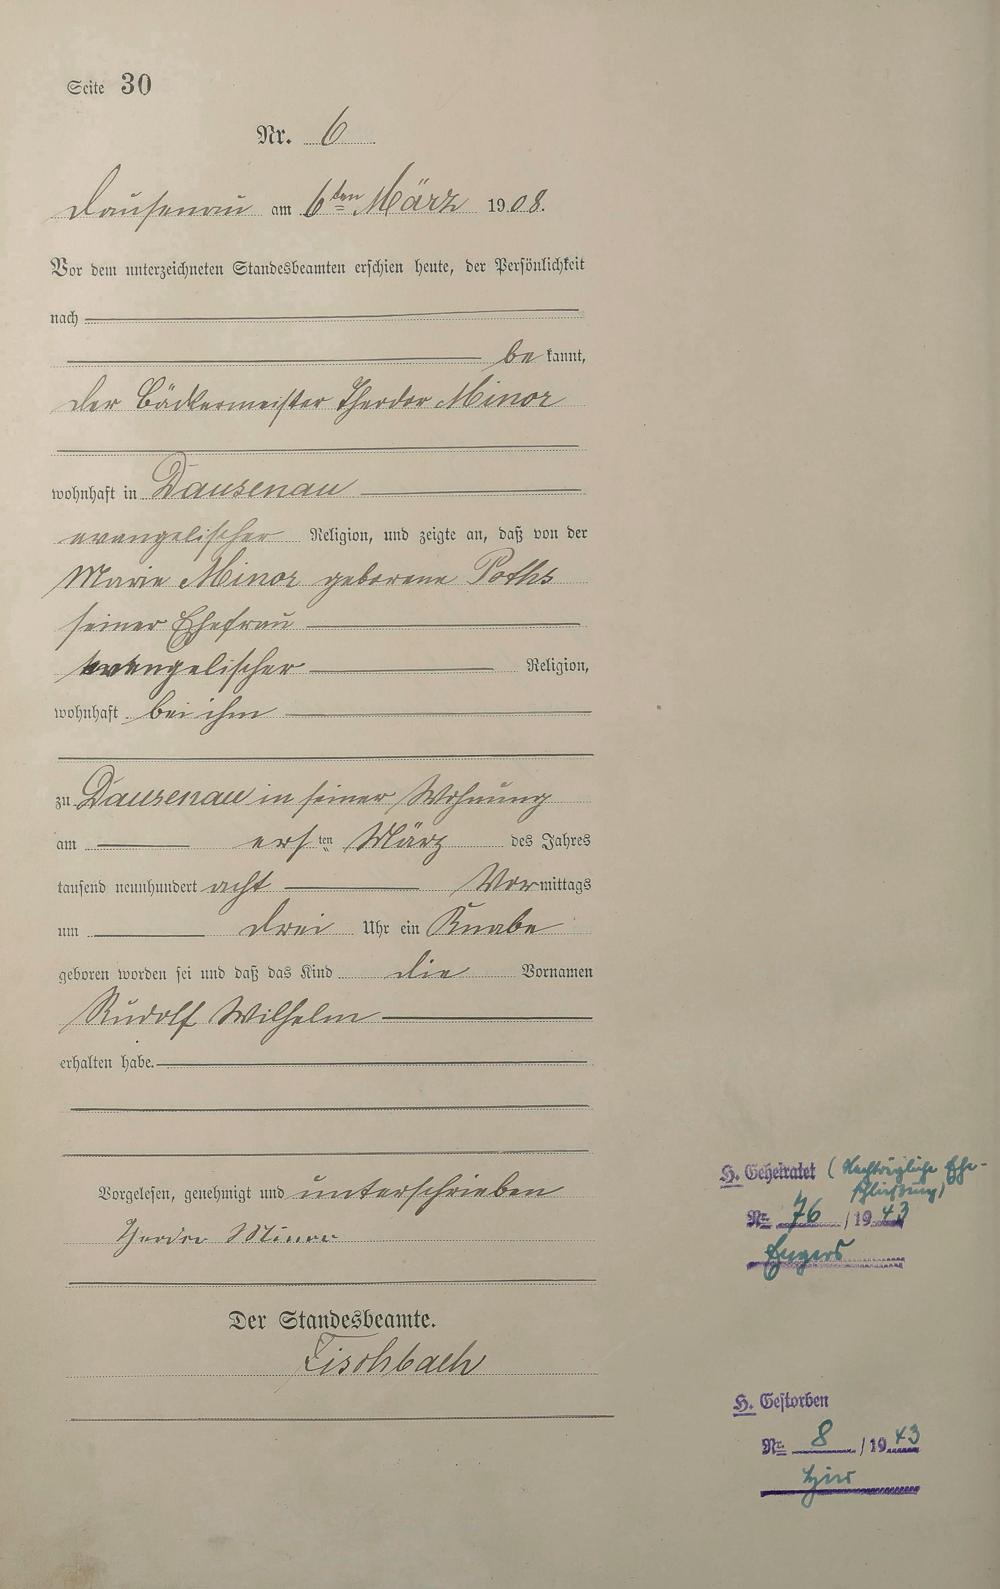 Seite 30
Nr. 6
Dausenau am 6ten März 1908.
Vor dem unterzeichneten Standesbeamten erschien heute, der Persönlichkeit
nach
be kannt,
der Bäckermeister Theodor Minor
wohnhaft in Dausenau
evangelischer Religion, und zeigte an, daß von der
Marie Minor geborene Poths
seiner Ehefrau
evangelischer Religion,
wohnhaft bei ihm
zu Dausenau in seiner Wohnung
am ersten März des Jahres
tausend neunhundert acht Vormittags
um drei Uhr ein Knabe
geboren worden sei und daß das Kind die Vornamen
Rudolf Wilhelm
erhalten habe.
Vorgelesen, genehmigt und unterschrieben
Theodor Minor
Der Standesbeamte.
Fischbach
H. Geheiratet (Nachträgliche Ehe-
schließung)
Nr. 76 /1943
Engers
H. Gestorben
Nr. 8 /1943
hier